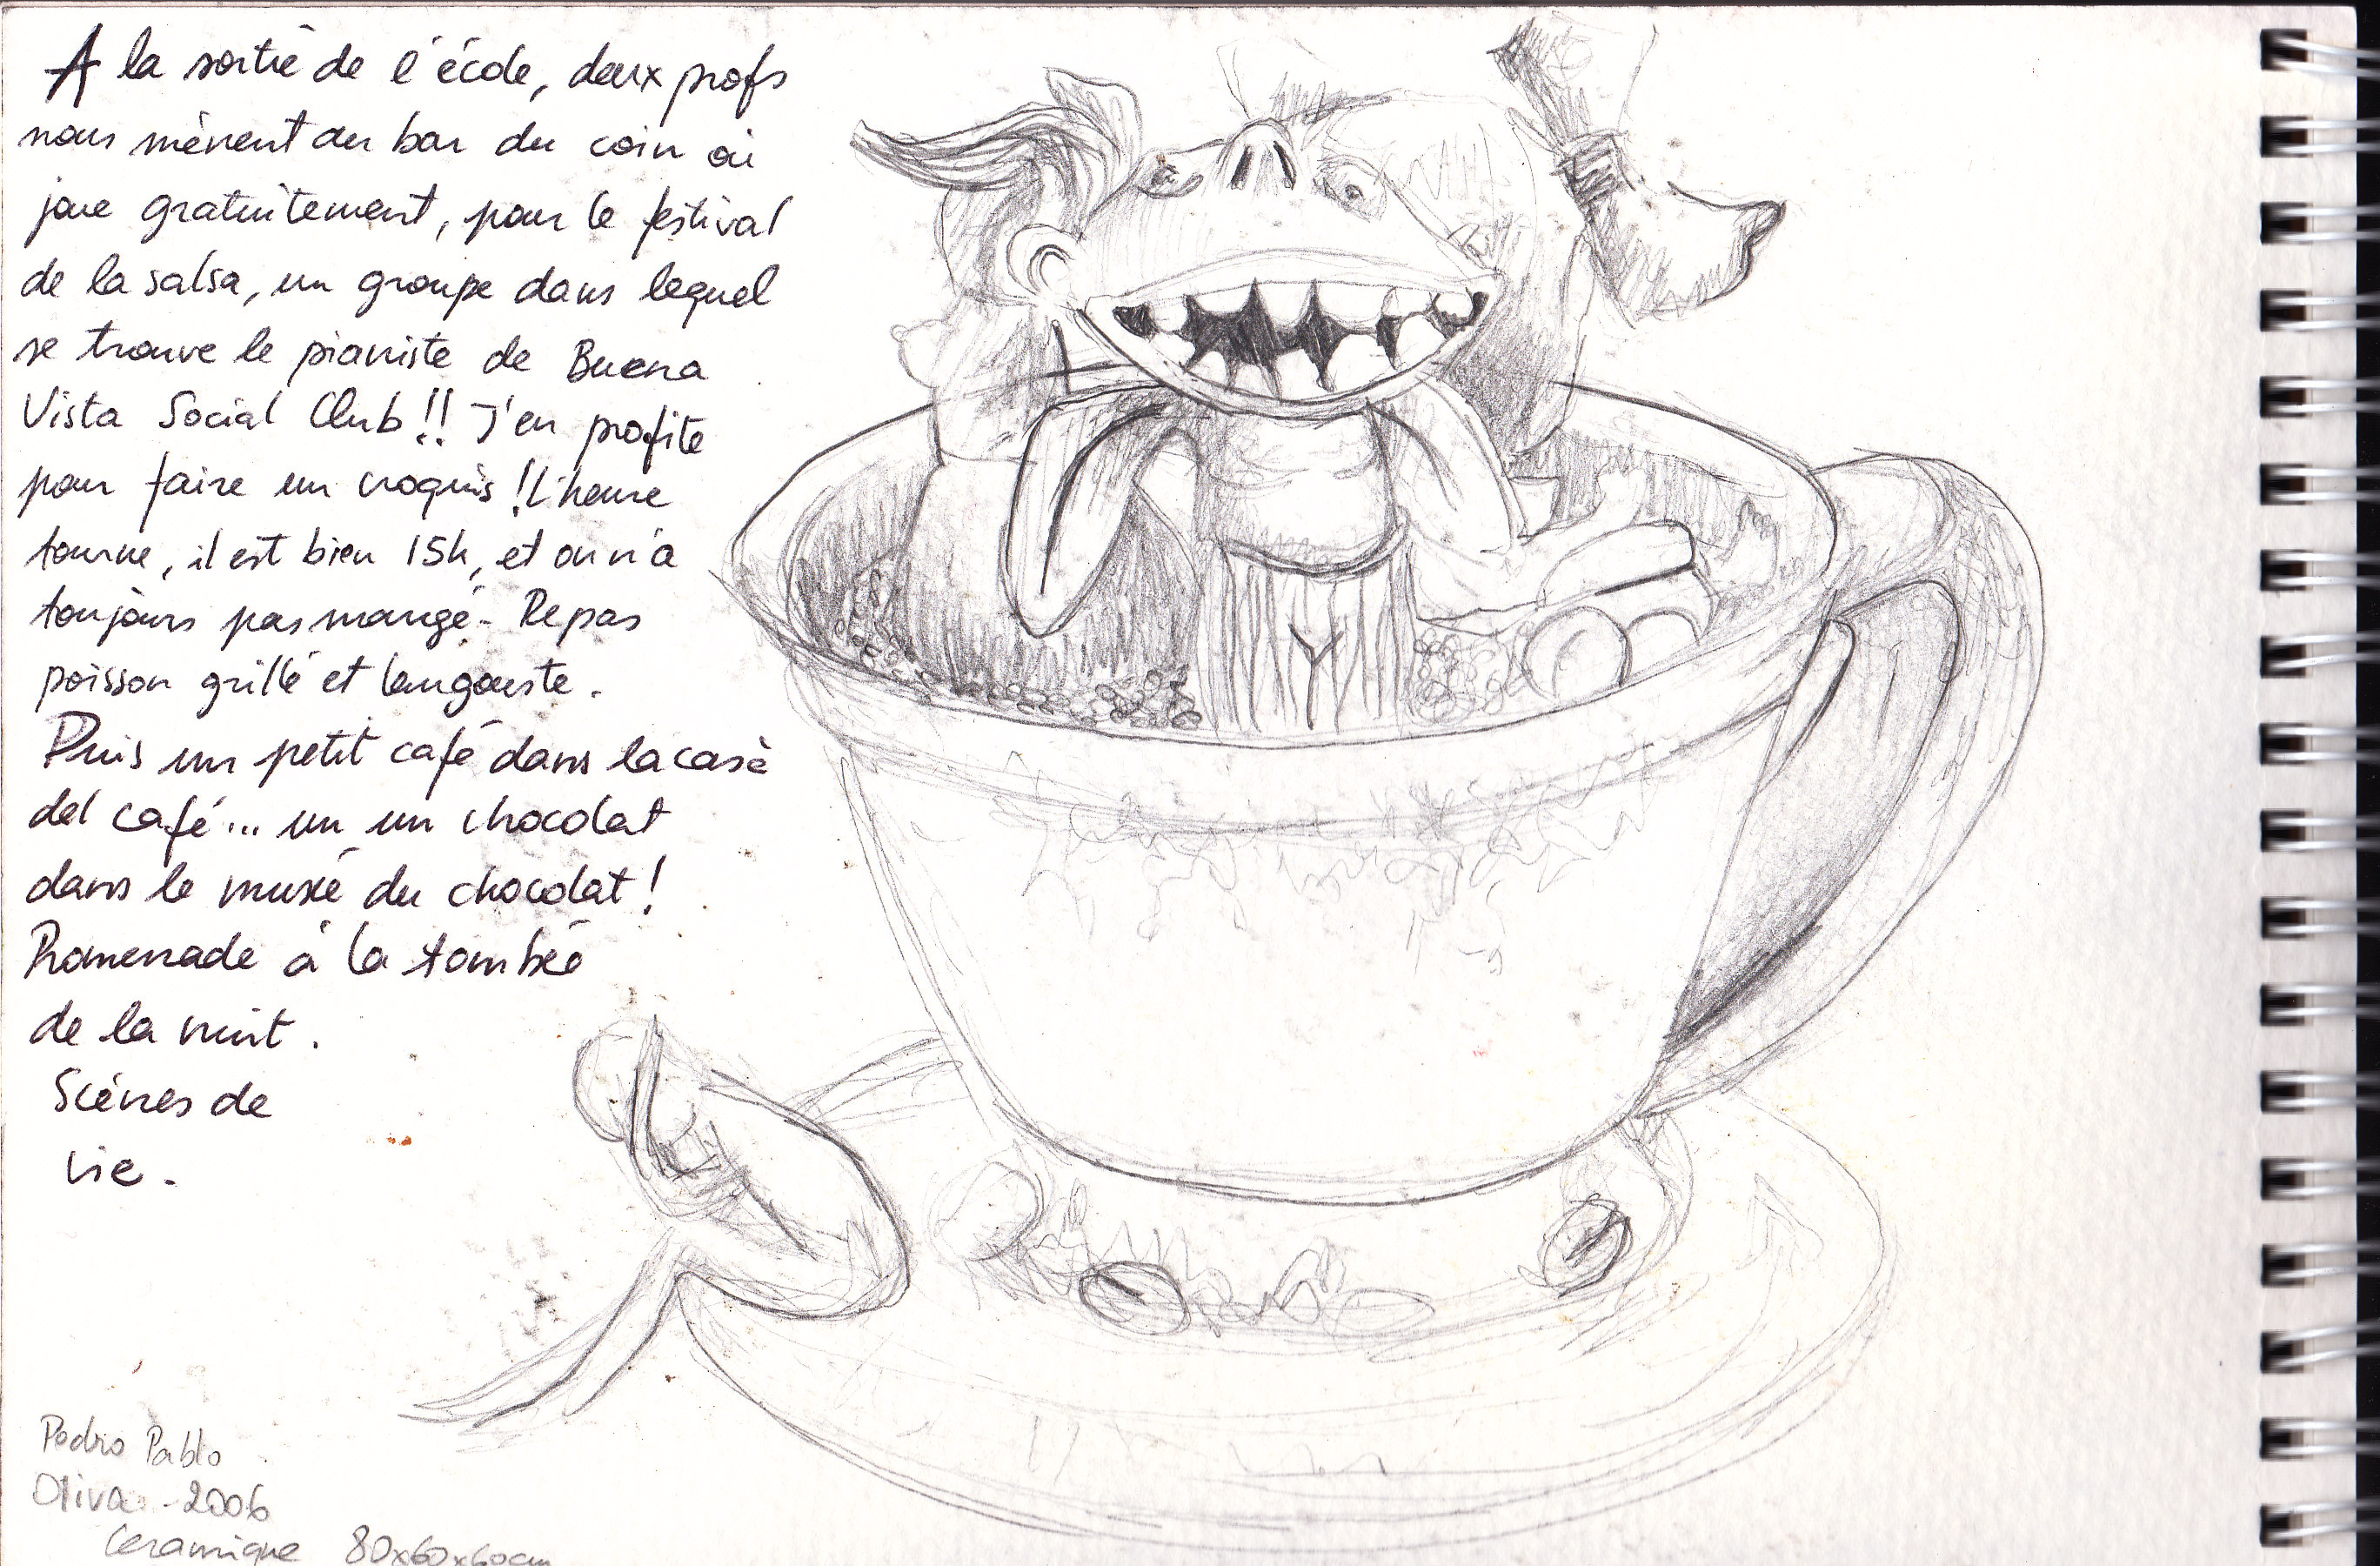 A la sortie de l'école, deux profs
nous mènent au bar du coin où
joue gratuitement, pour le festival
de la salsa, un groupe dans lequel
se trouve le pianiste de Buena
Vista Social Club!! J'en profite
pour faire un croquis ! L'heure
tourne, il est bien 15h, et on n'a
toujours pas mangé - Repas
poisson grillé et langouste.
Puis un petit café dans la casa
del café... un un chocolat
dans le musée du chocolat !
Promenade à la tombée
de la nuit.
Scènes de
vie.
Pedro Pablo
Oliva - 2006
Ceramique 80x60x60cm